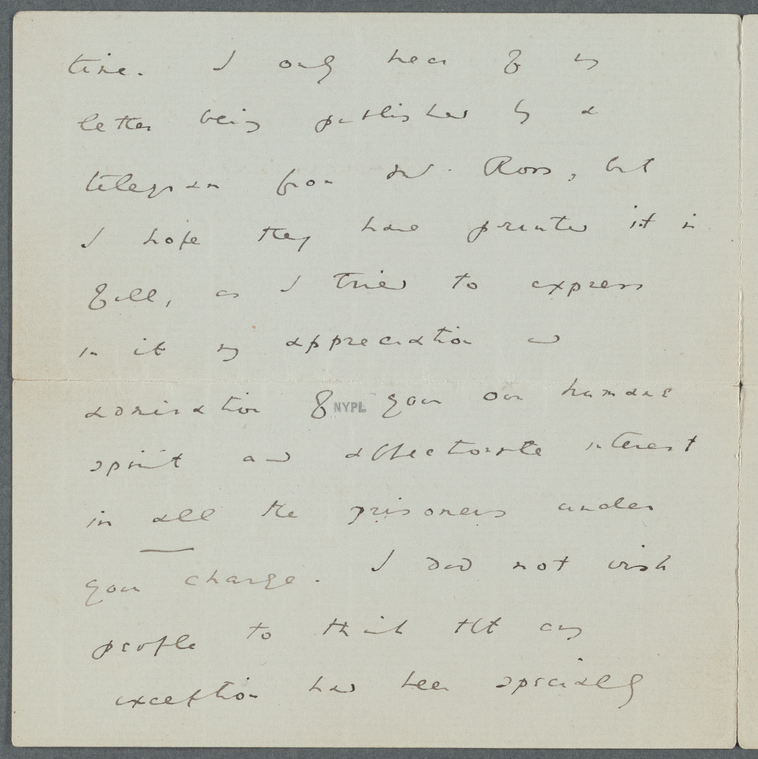 time. I only hear of my
letter being published by a
telegram from Mr. Ross, but
I hope they have printed it in
full, as I tried to express
in it my appreciation and
admiration of your own humane
spirit and affectionate interest
in all the prisoners under
your charge. I did not wish
people to think that any
exception had been specially
NYPL